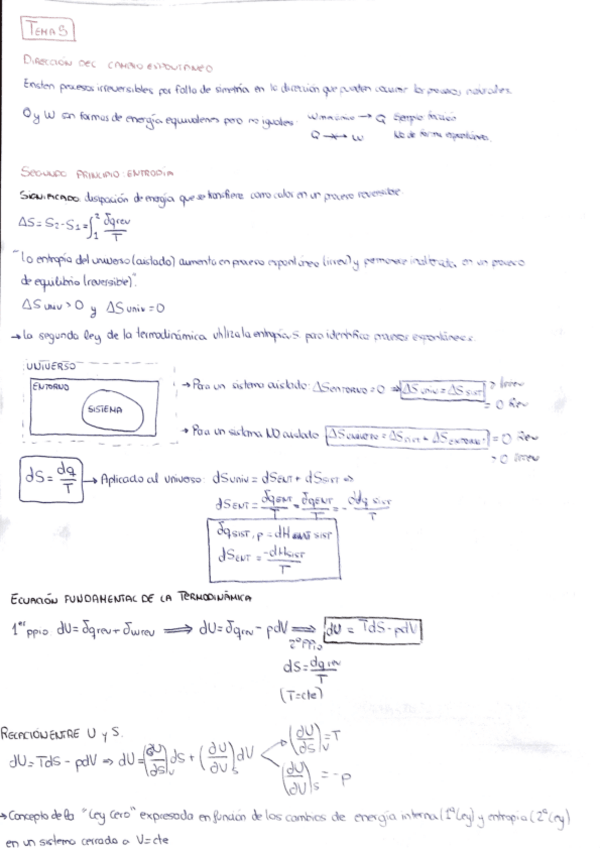 TEMA 5
DIRECCIÓN DEL CAMBIO ESPONTÁNEO
Existen procesos irreversibles por falta de simetría en la dirección que pueden ocurrir los procesos naturales.
Q y W son formas de energía equivalentes pero no iguales: W → Q Siempre
Q ↛ W No de forma espontánea.
SEGUNDO PRINCIPIO: ENTROPÍA
SIGNIFICADO: disipación de energía que se transfiere como calor en un proceso reversible.
ΔS = S₂ - S₁ = ∫₁² δqrev / T
"La entropía del universo (aislado) aumenta en proceso espontáneo (irrev) y permanece inalterada en un proceso
de equilibrio (reversible)".
ΔS univ > 0 y ΔS univ = 0
→ La segunda ley de la termodinámica utiliza la entropía, S para identificar procesos espontáneos.
UNIVERSO
ENTORNO
SISTEMA
→ Para un sistema aislado: ΔS ENTORNO = 0 ⇒ ΔS univ = ΔS SIST > Irrev
= 0 Rev
→ Para un sistema NO aislado ΔS UNIVERSO = ΔS SIST + ΔS ENTORNO = 0 Rev
> 0 Irrev
dS = dq / T → Aplicado al universo: dS univ = dS ENT + dS SIST ⇒
dS ENT = δq ENT / T = δq ENT / T = - dq SIST / T
δq SIST, p = dH SIST
dS ENT = -dH SIST / T
ECUACIÓN FUNDAMENTAL DE LA TERMODINÁMICA
1er ppio: dU = δqrev + δwrev ⟹ dU = δqrev - pdV ⟹ dU = TdS - pdV
2º PPIO
dS = dq rev / T
(T=cte)
RELACIÓN ENTRE U y S.
dU = TdS - pdV ⇒ dU = (∂U/∂S)V dS + (∂U/∂V)S dV
(∂U/∂S)V = T
(∂U/∂U)S = -p
→ Concepto de la "Ley Cero" expresada en función de los cambios de energía interna (1ª Ley) y entropía (2ª Ley)
en un sistema cerrado a V=cte